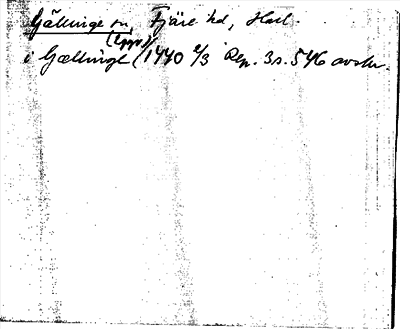 Gällinge sn, Fjäre hd, Hall.
(Uppg)
i Gællinge (1440 2/3 Rep. 3 s. 546 avskr.